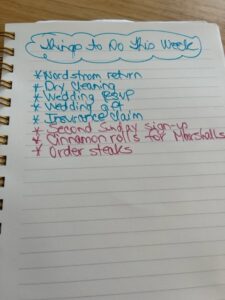 Things to Do This Week
* Nordstrom return
* Dry Cleaning
* Wedding RSVP
* Wedding gift
* Insurance claim
* Second Sunday sign-up
* Cinnamon rolls for Marshalls
* Order steaks